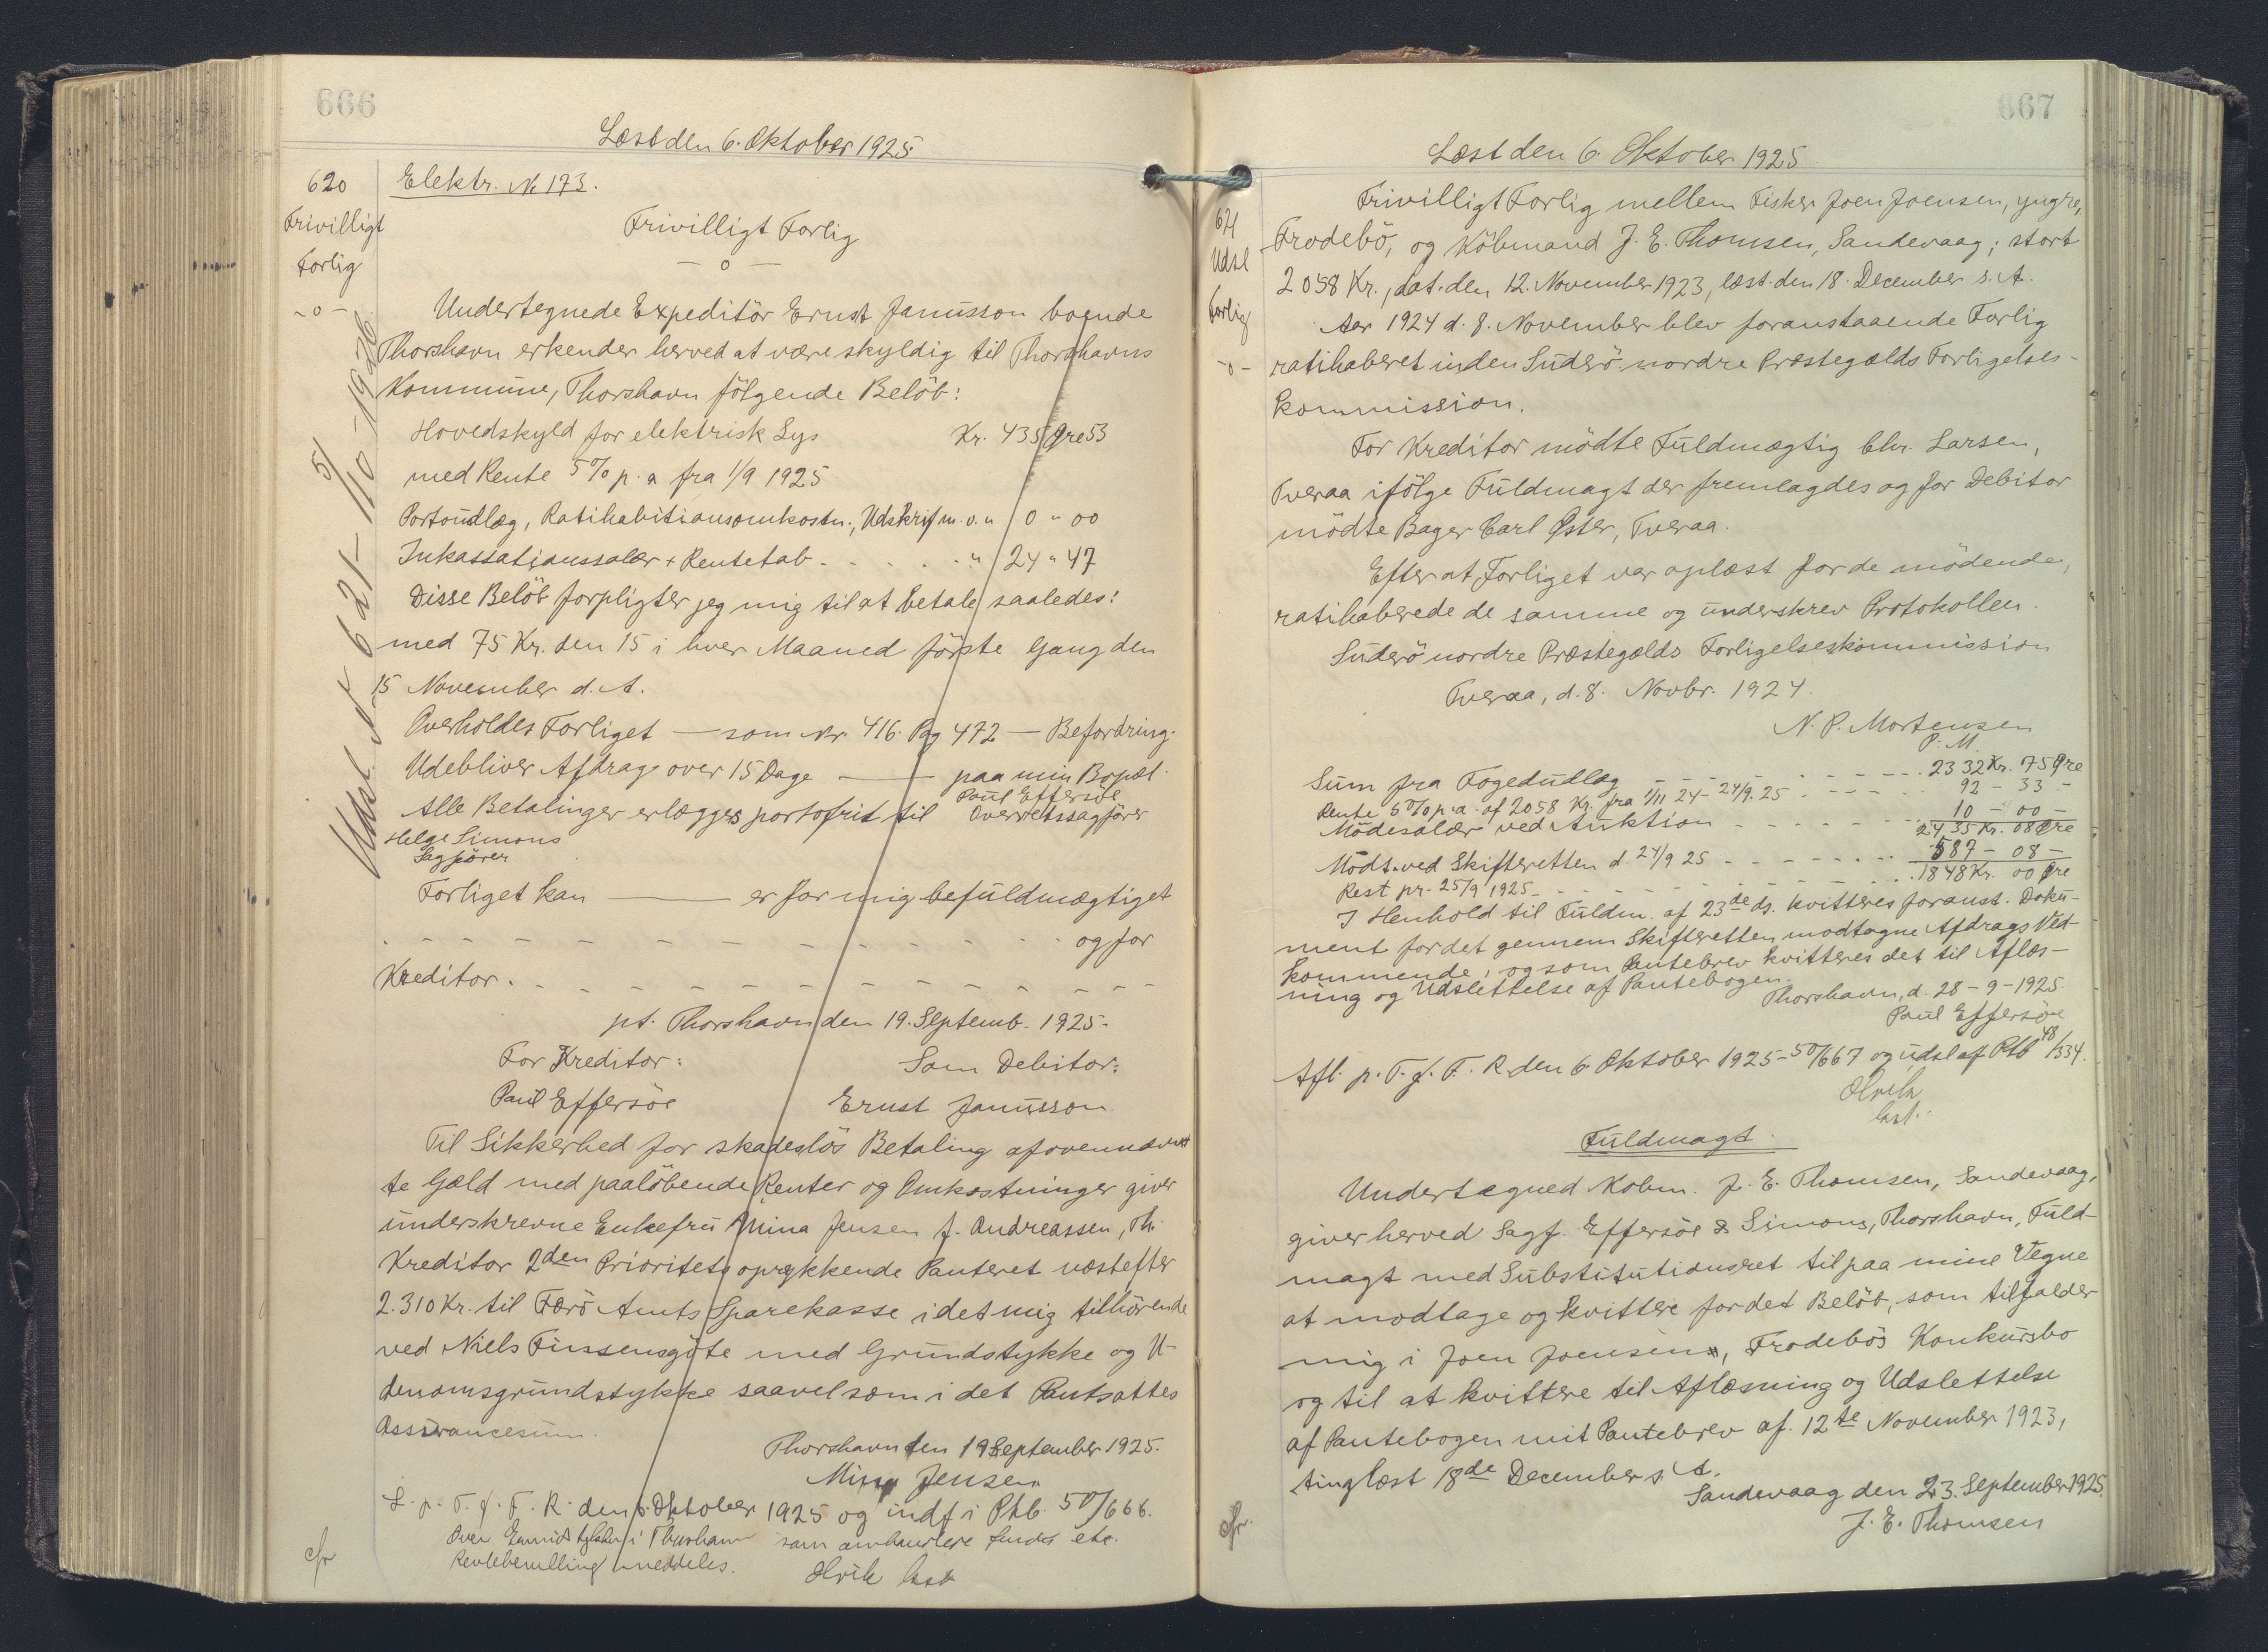 666
Læst den 6. Oktober 1925
620
Frivilligt
Forlig
-o-
Udsl. Nr 621 - 5/10 - 1926.
Elektr. Nr 173.
Frivilligt Forlig
— o —
Undertegnede Expeditör Ernst Janusson boende
Thorshavn erkender herved at være skyldig til Thorshavns
Kommune, Thorshavn fölgende Belöb:
Hovedskyld for elektrisk Lys Kr. 435 Øre 53
med Rente 5% p. a fra 1/9 1925
Portoudlæg, Ratihabitionsomkostn., Udskrif m. v. " 0 " 00
Inkassationssalær + Rentetab - - - - - " 24 " 47
Disse Belöb forpligter jeg mig til at betale saaledes:
med 75 Kr. den 15 i hver Maaned förste Gang den
15 November d. A.
Overholdes Forliget — som Nr. 416. Pag 472 — Befordring.
Udebliver Afdrag over 15 Dage — paa min Bopæl.
Alle Betalinger erlægges portofrit til Paul Effersöe Overretssagförer
Helge Simons
Sagförer
Forliget kan ——— er for mig befuldmægtiget
- - - - - - - - - - - og for
Kreditor. - - - - - - - - - - -
pt. Thorshavn den 19. Septemb. 1925.
For Kreditor: Som Debitor:
Paul Effersöe Ernst Janusson
Til Sikkerhed for skadeslös Betaling af ovennævn
te Gæld med paalöbende Renter og Omkostninger giver
underskrevne Enkefru Mina Jensen f. Andreassen, Th.
Kreditor 2den Prioritets oprykkende Panteret næstefter
2.310 Kr. til Færö Amts Sparekasse i det mig tilhörende
ved Niels Finsensgöte med Grundstykke og U-
denomsgrundstykke saavel som i det Pantsattes
Assurancesum.
Thorshavn den 19 September 1925.
Mina Jensen
L. p. T. f. F. R. den 6. Oktober 1925 og indf i Ptb. 50/666.
Over Grundstykker i Thorshavn som omhandlere findes etc.
meddeles.
cfr

667
Læst den 6. Oktober 1925
621
Udsl
Forlig
-o-
Frivilligt Forlig mellem Fisker Joen Joensen, yngre,
Frodebö, og Köbmand J. E. Thomsen, Sandevaag; stort
2058 Kr., dat. den 12. November 1923, læst. den 18. December s. A.
Aar 1924 d. 8. November blev foranstaaende Forlig
ratihaberet inden Suderö nordre Præstegælds Forligelses-
kommission.
For Kreditor mödte Fuldmægtig Chr. Larsen,
Tveraa ifölge Fuldmagt der fremlagdes og for Debitor
mödte Bager Carl Øster, Tveraa.
Efter at Forliget var oplæst for de mödende,
ratihaberede de samme og underskrev Protokollen.
Suderö nordre Præstegælds Forligelseskommission
Tveraa, d. 8. Novbr. 1924.
N. P. Mortensen
P. M.
Sum fra Fogedudlæg - - - - - 2332 Kr. 75 Øre
Rente 5% p. a. af 2058 Kr. fra 1/11 24 - 24/9. 25 - - - 92 - 33 -
Mödesalær ved Auktion - - - - - 10 - 00 -
2435 Kr. 08 Øre
Modt. ved Skifteretten d. 24/9 25 - - - - - 587 - 08 -
Rest pr. 25/9 1925 - - - - - 1848 Kr. 00 Øre
I Henhold til Fuldm. af 23de ds. kvitteres foranst. Doku-
ment for det gennem Skifteretten modtagne Afdrag Ved-
kommende, og som Pantebrev kvitteres det til Aflæs-
ning og Udslettelse af Pantebogen.
Thorshavn, d. 28 - 9 - 1925
Paul Effersöe
Afl. p. T. f. F. R. den 6. Oktober 1925 - 50/667 og udsl af Ptb 48/334.
Fuldmagt.
Undertegned Kobm. J. E. Thomsen, Sandevaag,
giver herved Sagf. Effersöe & Simons, Thorshavn, Fuld-
magt med Substitutionsret til paa mine Vegne
at modtage og kvittere for det Belöb, som tilfalder
mig i Joen Joensens, Frodebös Konkursbo
og til at kvittere til Aflæsning og Udslettelse
af Pantebogen mit Pantebrev af. 12te November 1923,
tinglæst 18de December s. A.
Sandevaag den 23. September 1925.
J. E. Thomsen
cfr.